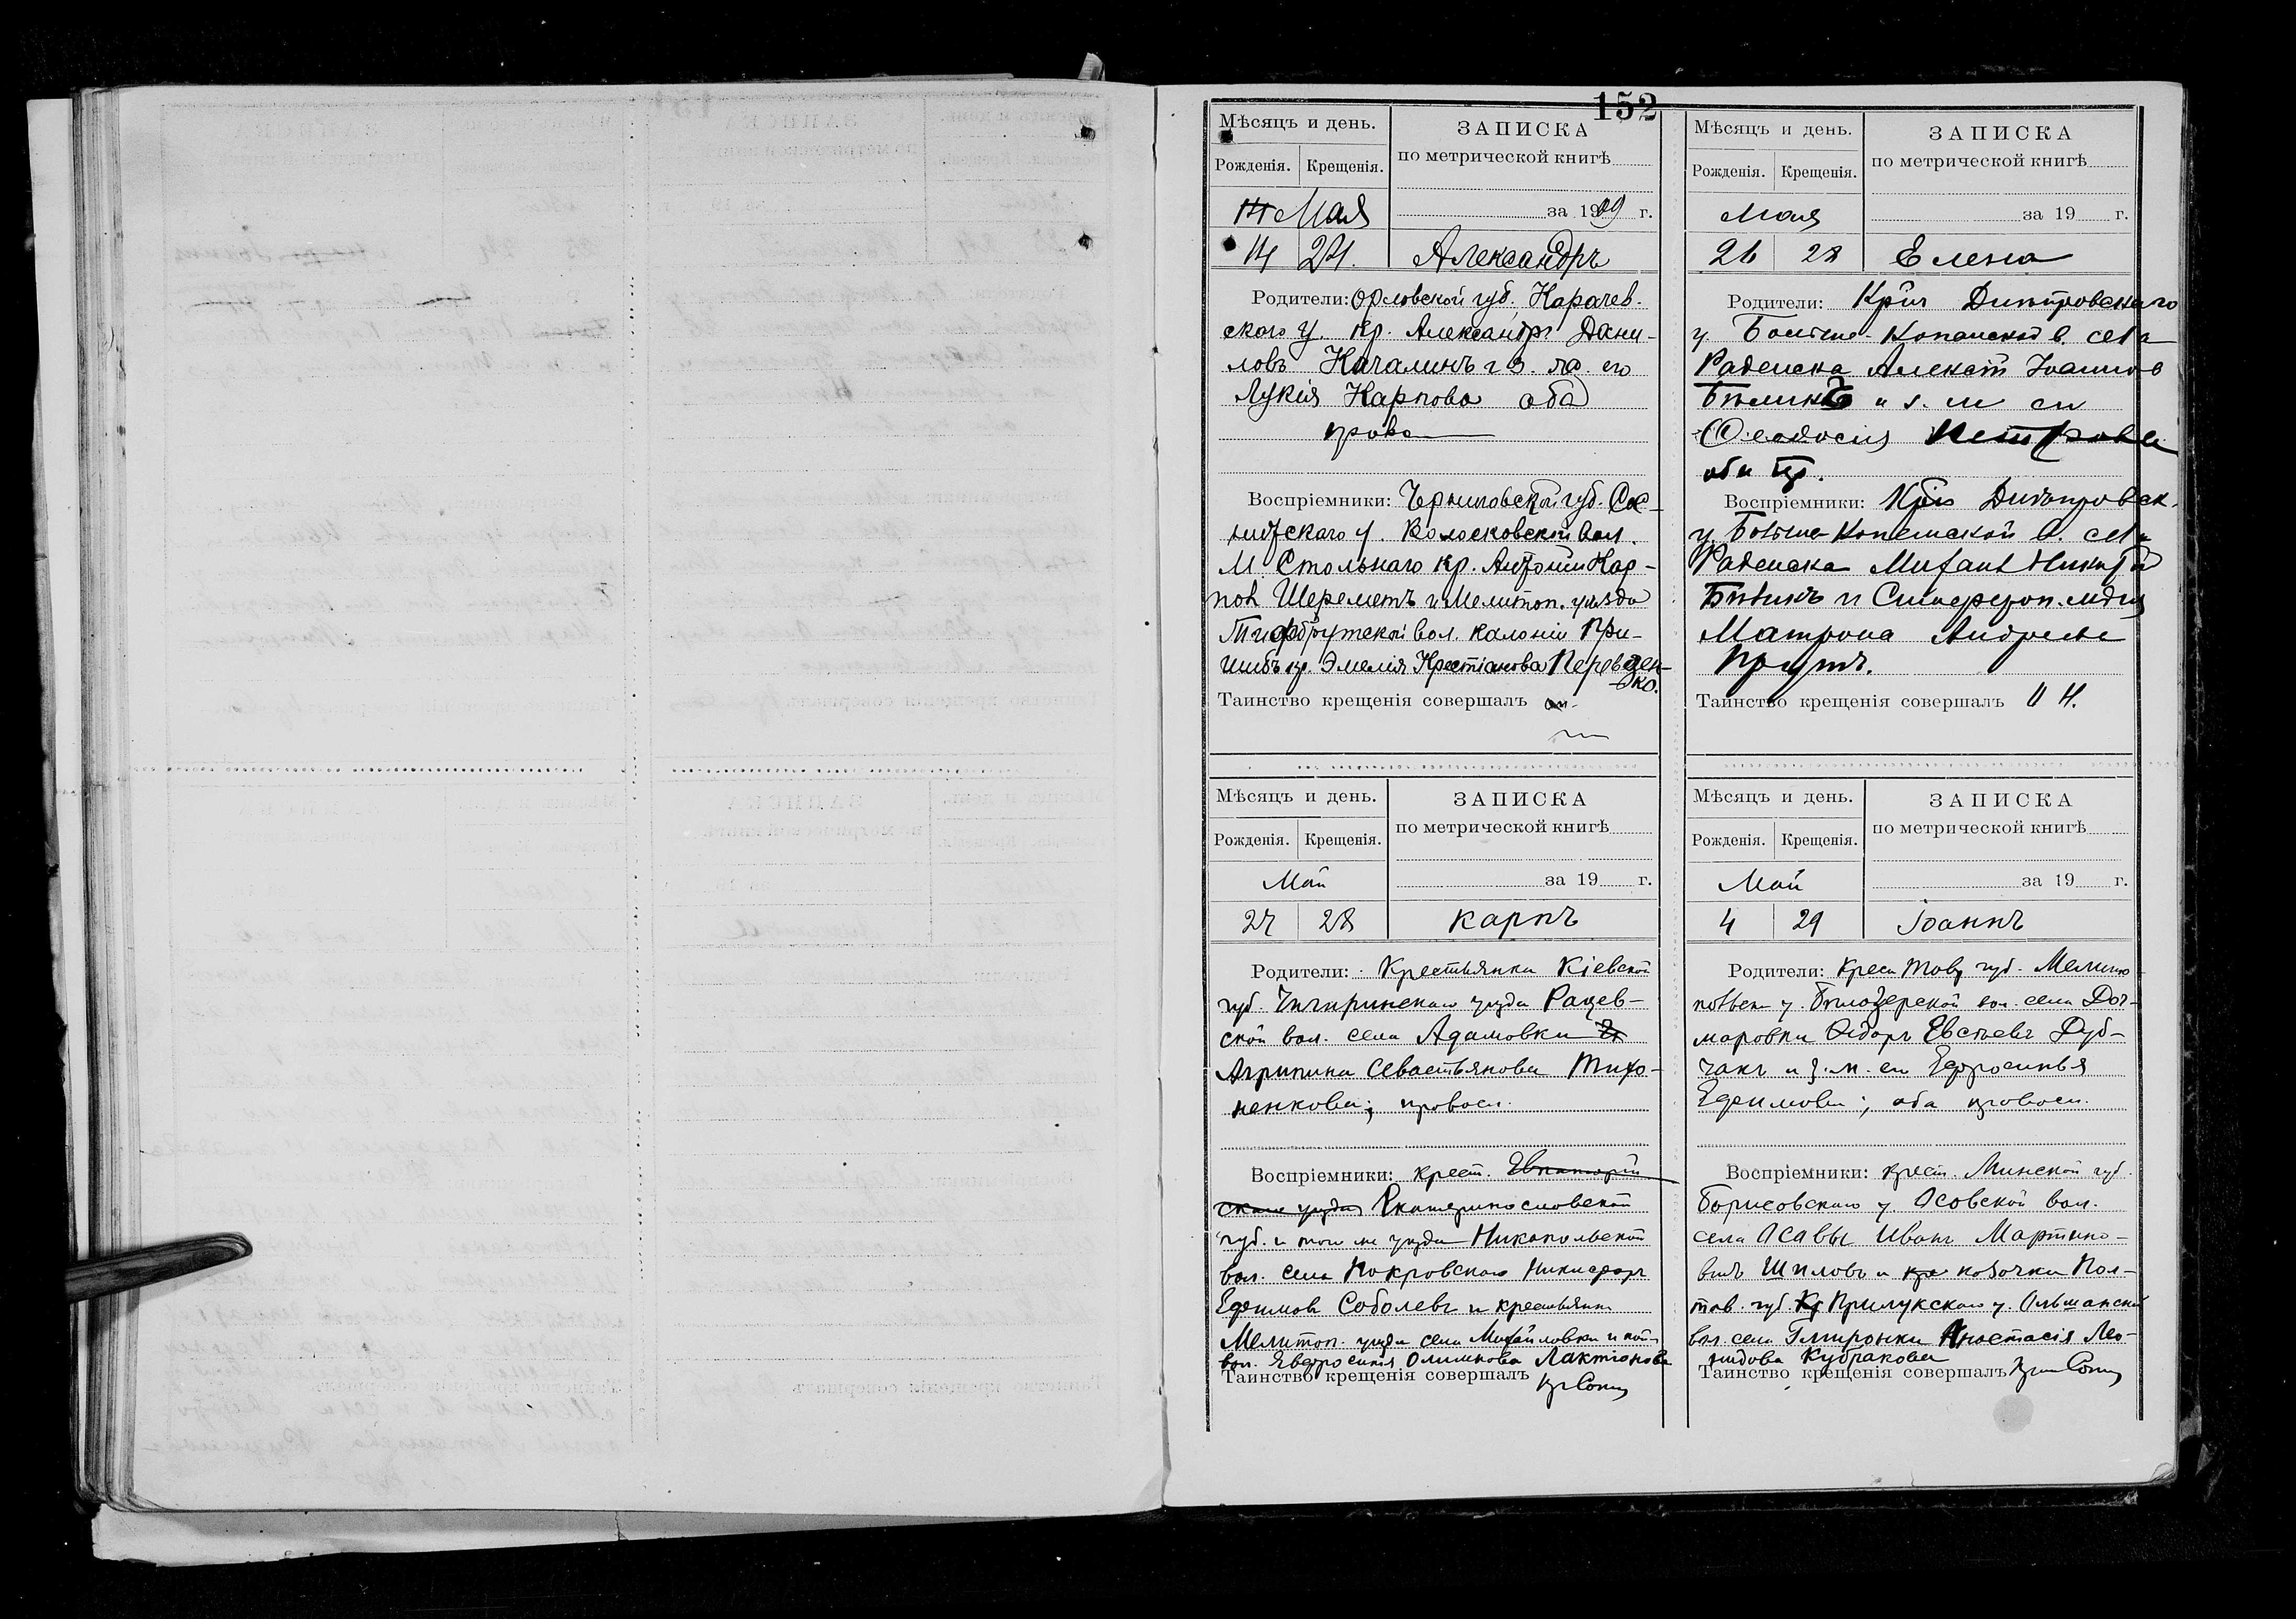 152
Мѣсяцъ и день.
Рожденія. Крещенія.
ЗАПИСКА
по метрической книгѣ
за 1909 г.
Мая
14 24. Александръ
Родители: Орловской губ. Карачев-
скаго у. кр. Александръ Дани-
ловъ Качалинъ и з. ж. его
Лукія Карпова оба
право
Воспріемники: Черниговской губ. Сос-
ницкаго у. Волосковской вол.
М. Стольнаго кр. Антоній Кар-
повъ Шереметъ и Мелитоп. уѣзда
вол. калоніи При-
шибъ кр. Эмелія Крестіанова Переведен-
ко.
Таинство крещенія совершалъ
Мѣсяцъ и день.
Рожденія. Крещенія.
ЗАПИСКА
по метрической книгѣ
за 19 г.
Мая
26 28 Елена
Родители: Кр. Днѣпровскаго
у. Больше-Копанской в. села
Раденска Алексѣй Іоаннов
Бѣликъ и з. ж. его
Ѳеодосія Петрова
оба пр.
Воспріемники: Кр. Днѣпровск.
у. Больше-Копанской в. села
Раденска Михаилъ Никит
Бѣликъ и Симфероп.
Матрона Андреева
Таинство крещенія совершалъ
Мѣсяцъ и день.
Рожденія. Крещенія.
ЗАПИСКА
по метрической книгѣ
за 19 г.
Май
27 28 Карпъ
Родители: Крестьянка Кіевской
губ. Чигиринскаго уѣзда Рацев-
ской вол. села Адамовки
Агрипина Севастьянова Тихо-
ненкова; правосл.
Воспріемники: крест. Евпаторій
скаго уѣзда Екатеринославской
губ. и того же уѣзда Никопольской
вол. села Покровскаго Никифоръ
Ефимовъ Соболевъ и крестьянка
Мелитоп. уѣзда села Михайловки и той
вол. Евфросинія Лактіонова
Таинство крещенія совершалъ
Мѣсяцъ и день.
Рожденія. Крещенія.
ЗАПИСКА
по метрической книгѣ
за 19 г.
Май
4 29 Іоаннъ
Родители: Крест. Тавр. губ. Мелито
польск. у. Бѣлозерской вол. села Дог-
маровки Ѳедоръ Евсѣевъ Дуб-
чакъ и з. ж. его Ефросинья
Ефимова; оба правосл.
Воспріемники: крест. Минской губ.
Борисовскаго у. Осовской вол.
села Осавы Иванъ Мартино-
вичъ Шиловъ и козачка Пол-
тав. губ. Прилукскаго у. Ольшанской
вол. села Гмирянки Анастасія Лео-
нидова Кубракова
Таинство крещенія совершалъ